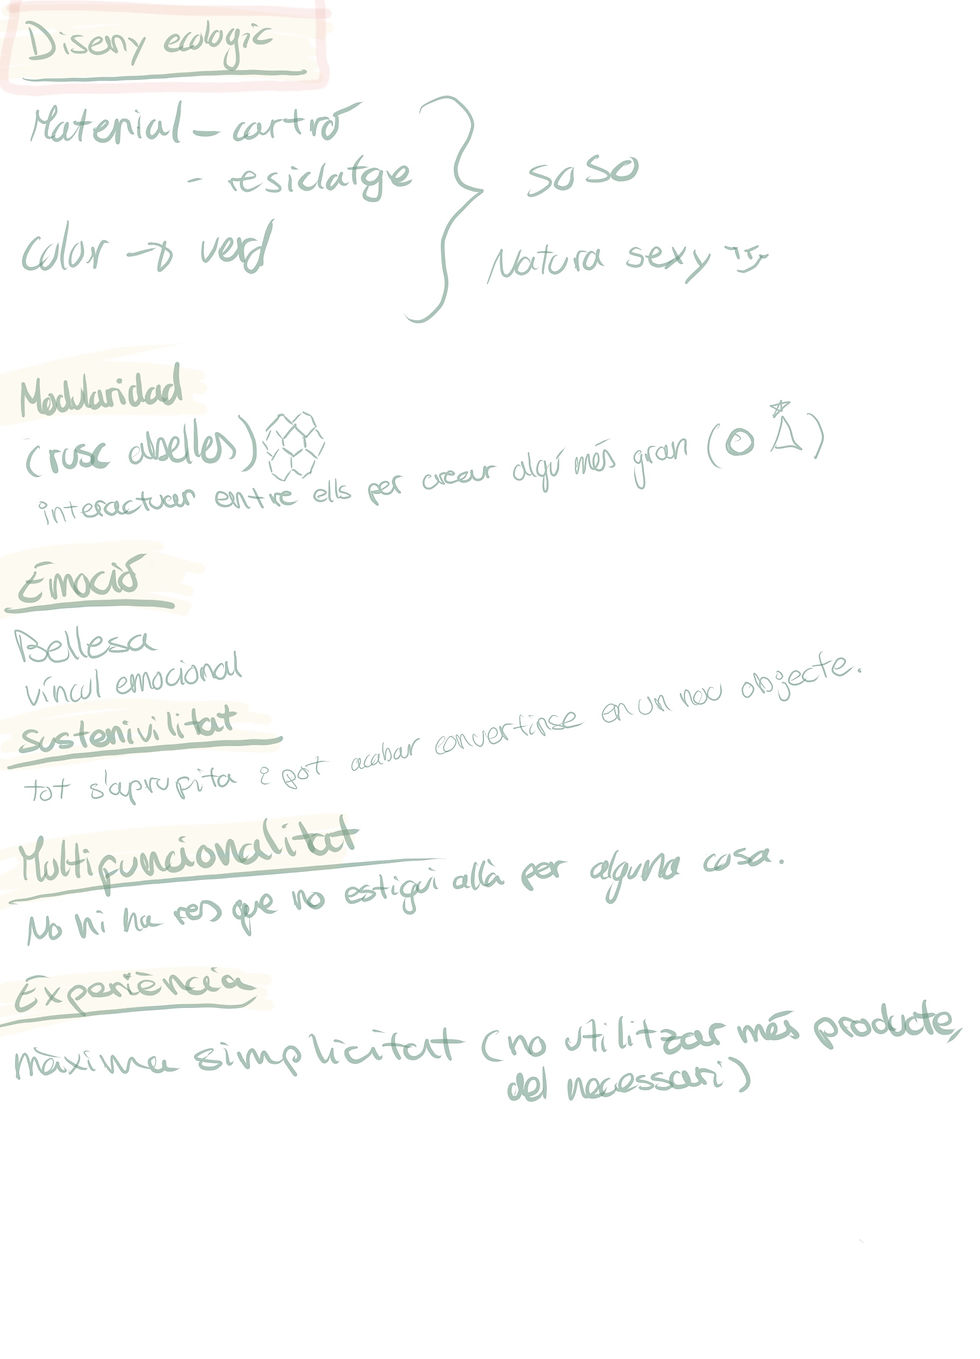 Diseny ecologic
Material - cartró
- resiclatge
color → verd
soso
Natura sexy
Modularidad
(rusc abelles)
interactuar entre ells per crear algú més gran ( )
Emoció
Bellesa
víncul emocional
Sustenivilitat
tot s'aprupita i pot acabar convertinse en un nou objecte.
Multifuncionalitat
No hi ha res que no estigui allà per alguna cosa.
Experiència
màxima simplicitat (no utilitzar més producte,
del necessari)